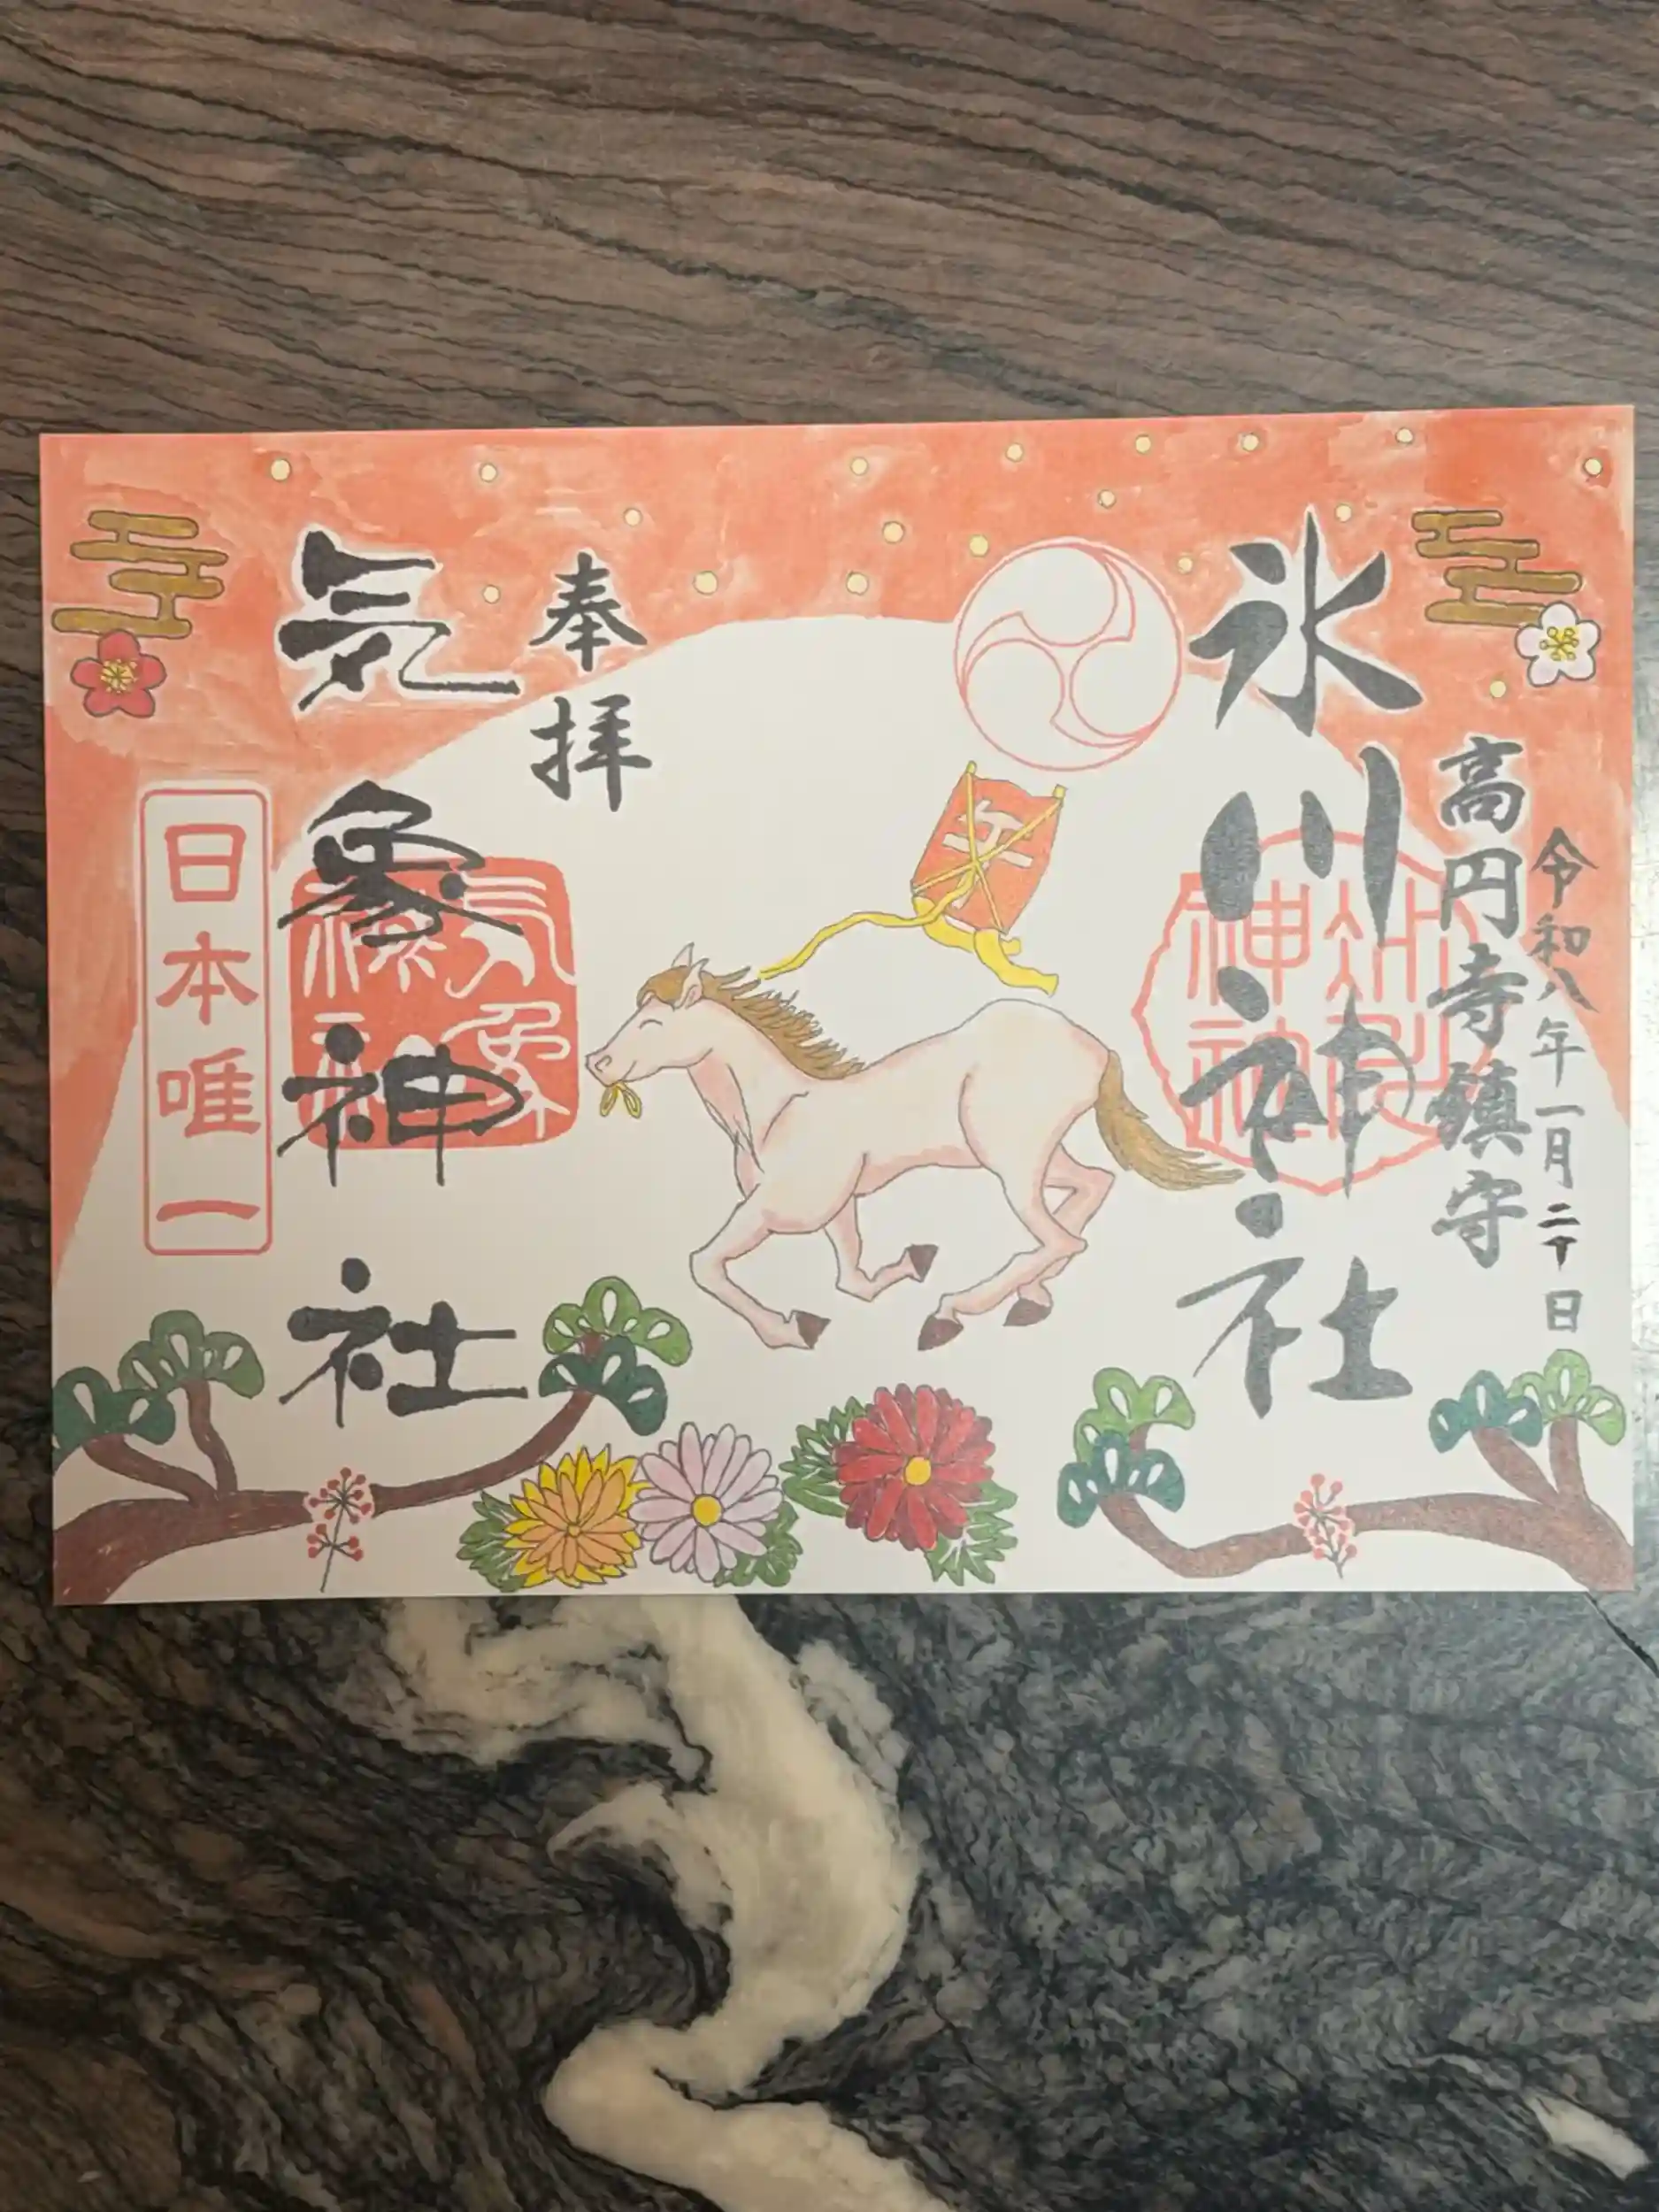 令和八年一月二十日
高円寺鎮守
氷川神社
午
奉拝
気象神社
気象神社
日本唯一